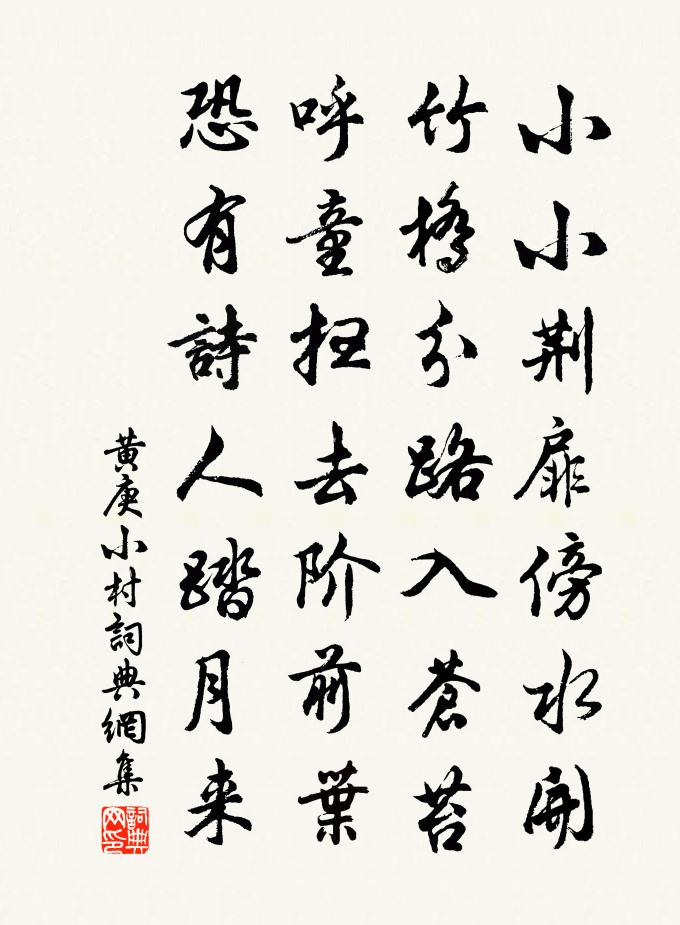 小小荆扉傍水開
竹橋分路入蒼苔
呼童扫去阶前葉
恐有詩人踏月来
黄庚小村詞典網集
詞典网印